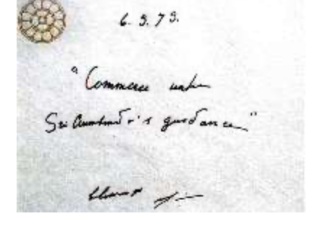 6. 9. 73.
"Commerce under
Sri Aurobindo's guidance"